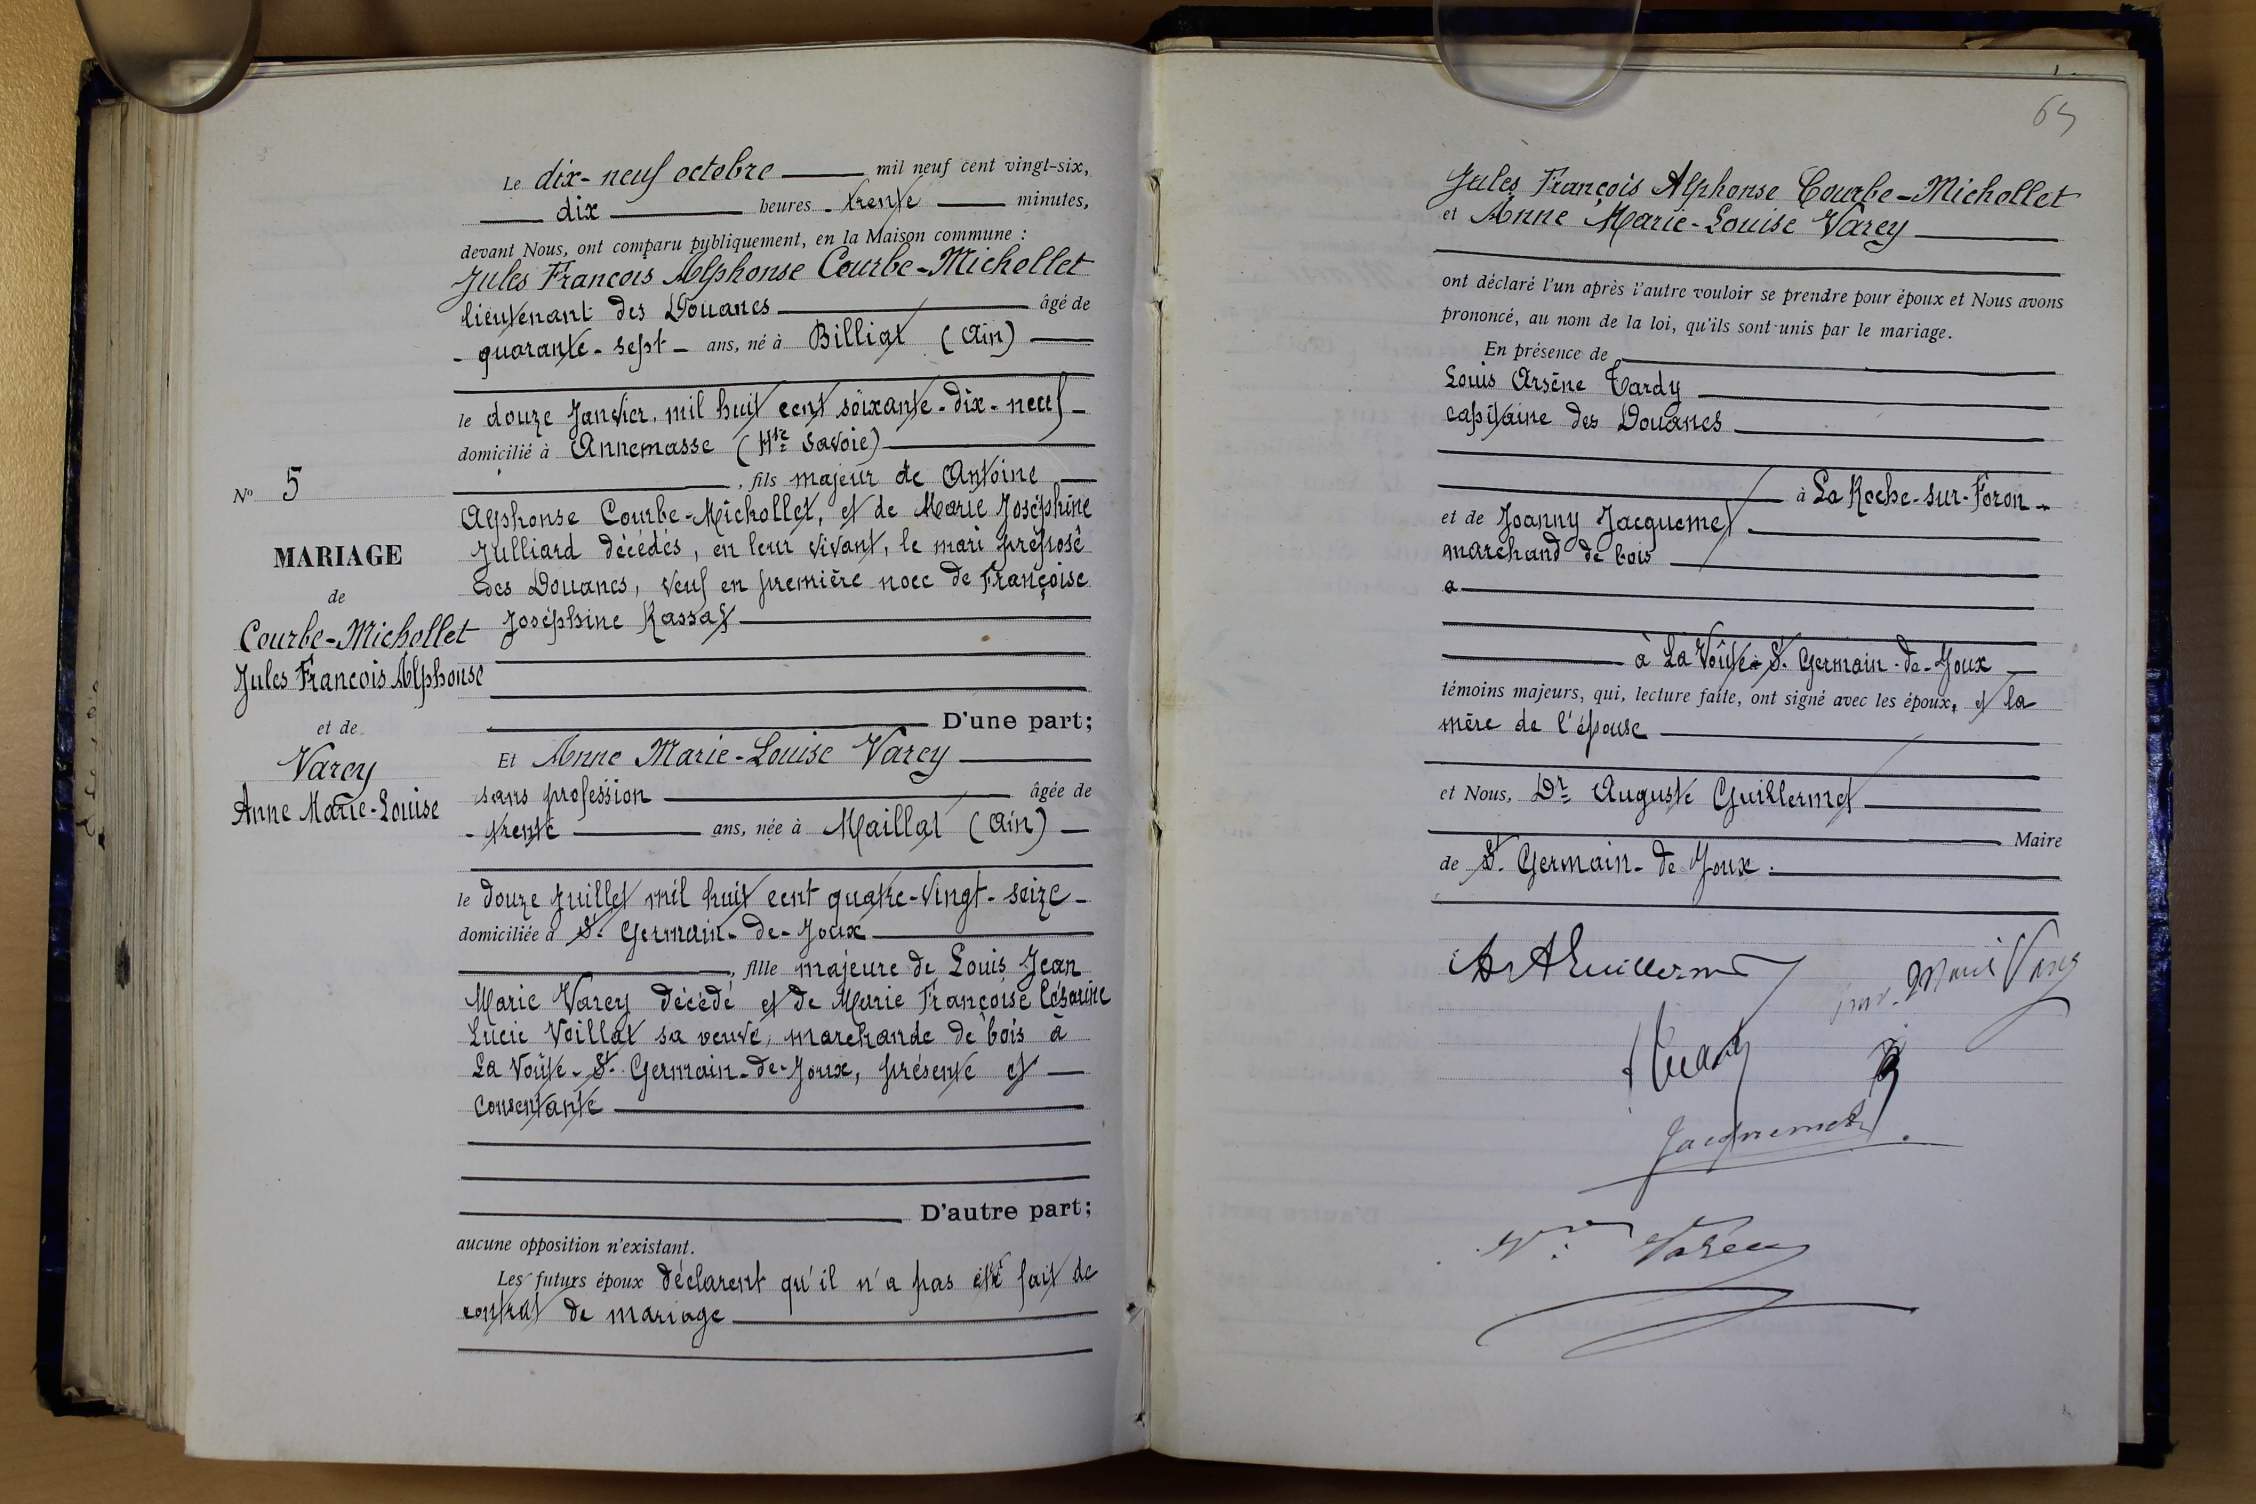 Le dix-neuf octobre mil neuf cent vingt-six,
dix heures trente minutes,
devant Nous, ont comparu publiquement, en la Maison commune :
Jules François Alphonse Courbe-Michollet
lieutenant des Douanes âgé de
quarante-sept ans, né à Billiat (Ain)
le douze Janvier mil huit cent soixante-dix-neuf
domicilié à Annemasse (Hte Savoie)
, fils majeur de Antoine
Alphonse Courbe-Michollet, et de Marie Joséphine
Julliard décédés, en leur vivant, le mari préposé
des Douanes, veuf en première noce de Françoise
Joséphine Rassat
D'une part;
Et Anne Marie-Louise Varey
sans profession âgée de
trente ans, née à Maillat (Ain)
le douze Juillet mil huit cent quatre-vingt-seize
domiciliée à St Germain-de-Joux
, fille majeure de Louis Jean
Marie Varey décédé et de Marie Françoise Césarine
Lucie Voillat sa veuve, marchande de bois à
La Voûte-St Germain-de-Joux, présente et
consentante
D'autre part;
aucune opposition n'existant.
Les futurs époux déclarent qu'il n'a pas été fait de
contrat de mariage
No 5
MARIAGE
de
Courbe-Michollet
Jules François Alphonse
et de
Varey
Anne Marie-Louise
65
Jules François Alphonse Courbe-Michollet
et Anne Marie-Louise Varey
ont déclaré l'un après l'autre vouloir se prendre pour époux et Nous avons
prononcé, au nom de la loi, qu'ils sont unis par le mariage.
En présence de
Louis Arsène Tardy
capitaine des Douanes
à La Roche-sur-Foron
et de Joanny Jacquemet
marchand de bois
a
à La Voûte-St Germain-de-Joux
témoins majeurs, qui, lecture faite, ont signé avec les époux, et la
mère de l'épouse
et Nous, Dr Auguste Guillermet
Maire
de St Germain-de Joux.
Dr A Guillermet
Marie Varey
Tardy
Jacquemet
Vve Varey